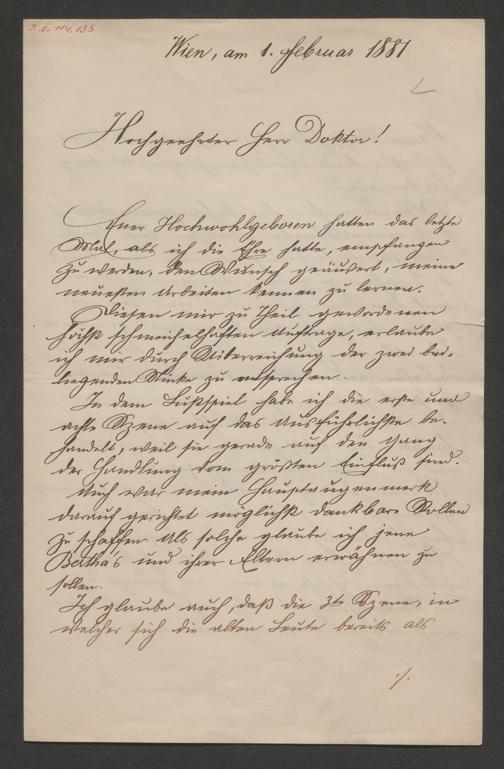 J.N. 114.135
Wien, am 1. Februar 1881
Hochgeehrter Herr Doktor!
Euer Hochwohlgeboren hatten das letzte
Mal, als ich die Ehre hatte, empfangen
zu werden, den Wunsch geäußert, meine
neuesten Arbeiten kennen zu lernen.
Diesem mir zu Theil gewordenen
höchst schmeichelhaften Auftrage, erlaube
ich mir durch Überreichung der zwei bei-
liegenden Stücke zu entsprechen.
In dem Lustspiel habe ich die erste und
achte Szene auf das Ausführlichste be-
handelt, weil sie gerade auf den Gang
der Handlung vom größten Einfluß sind.
Auch war mein Hauptaugenmerk
darauf gerichtet möglichst dankbare Rollen
zu schaffen als solche glaube ich jene
Bertha's und ihrer Eltern erwähnen zu
sollen.
Ich glaube auch, daß die 3te Szene, in
welcher sich die alten Leute bereits als
./.